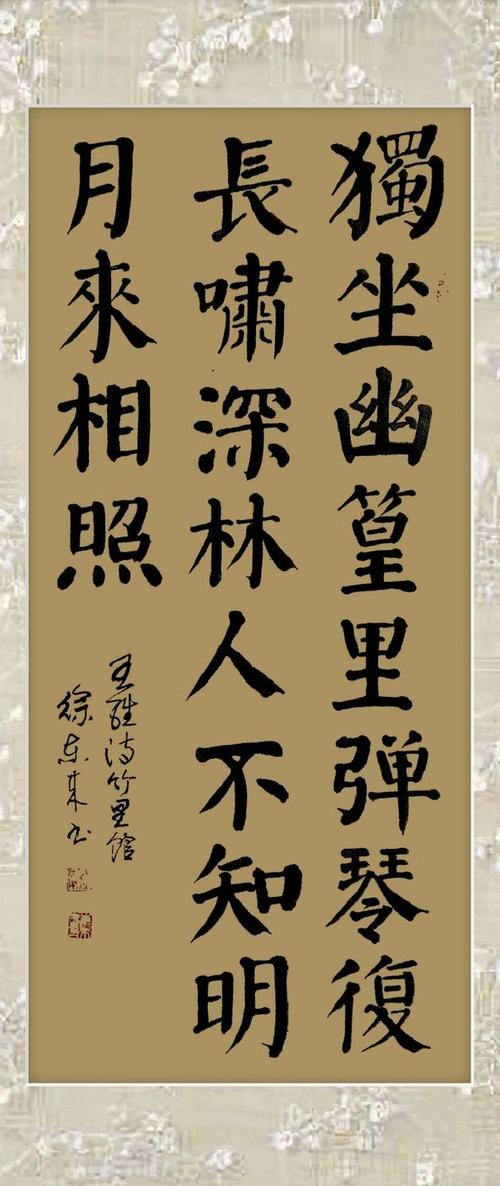 獨坐幽篁里弹琴復
長嘯深林人不知明
月來相照
王維诗竹里館
徐东来书